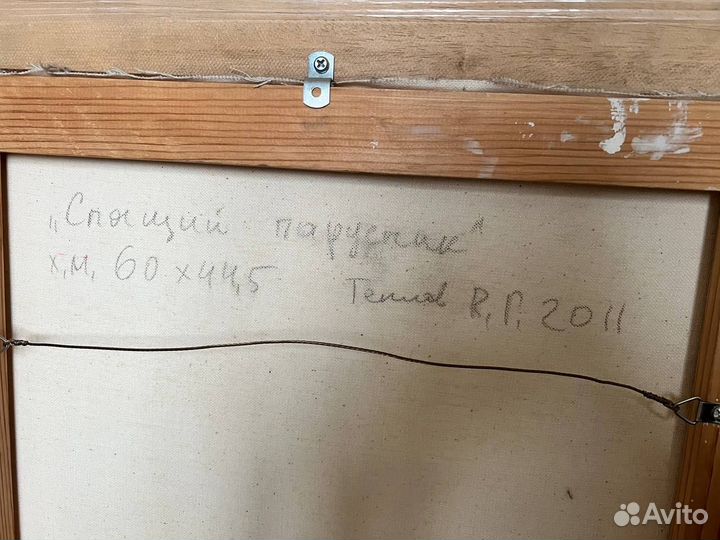 „Спящий парусник"
х.м. 60 x 44,5
Теплов В.Г. 2011
Avito